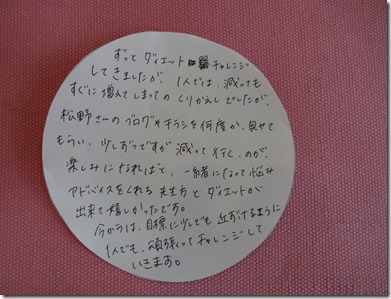 ずっと ダイエット チャレンジ
してきましたが、1人では、減っても
すぐに増えてしまっての くりかえしでしたが、
松野さんのブログやチラシを何度か、見せて
もらい、少しずつですが 減って 行く、のが、
楽しみになればと、一緒になって悩み
アドバイスをくれる 先生方と ダイエットが
出来て嬉しかったです。
今からは、目標に少しでも 近ずけるように
1人でも、頑張ってチャレンジして
いきます。